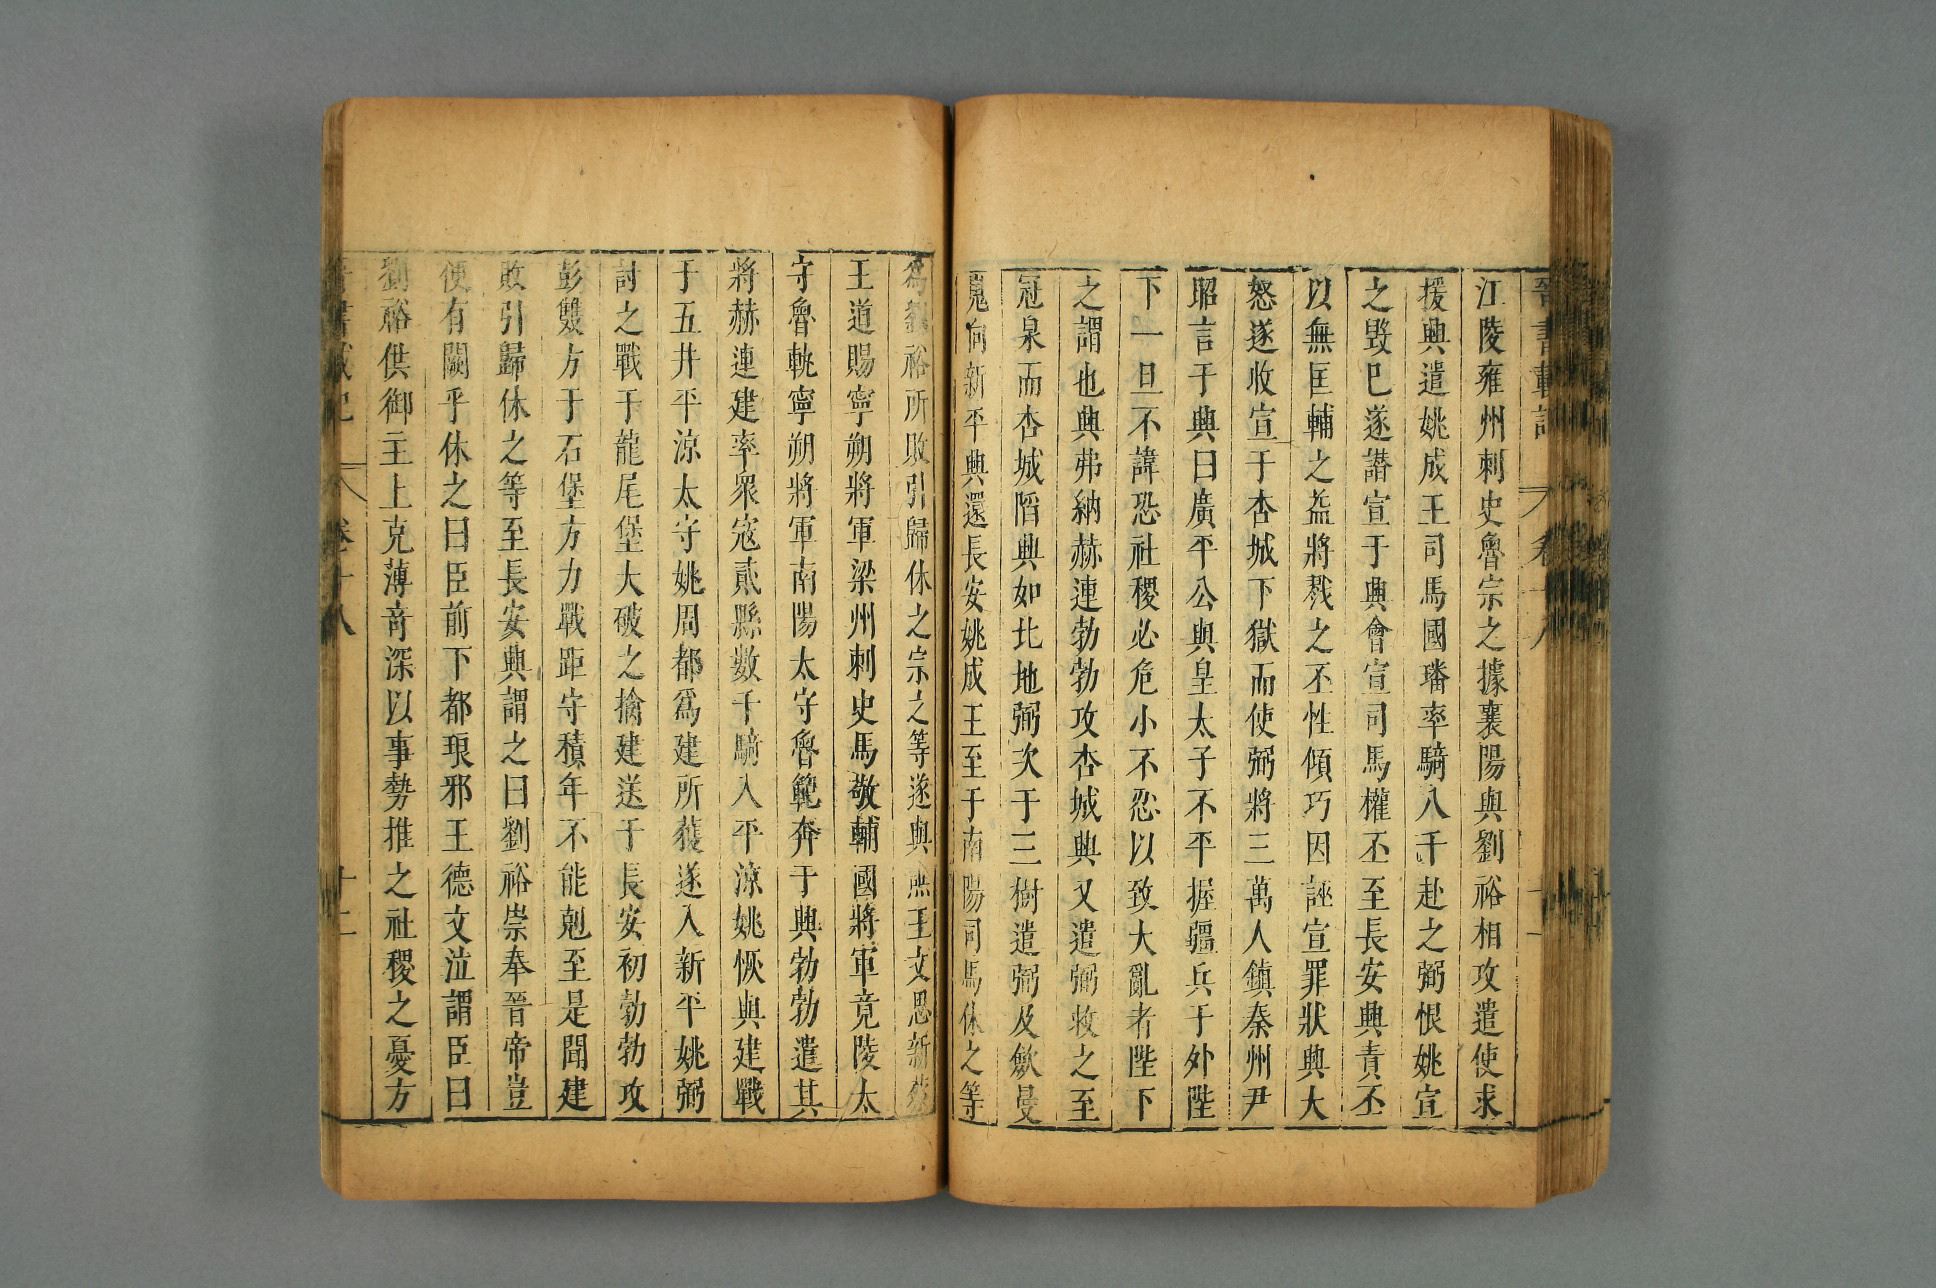 晉書載記 卷十八 十一
江陵雍州刺史魯宗之據襄陽與劉裕相攻遣使求
援興遣姚成王司馬國璠率騎八千赴之弼恨姚宣
之毀已遂譖宣于興會宣司馬權丕至長安興責丕
以無匡輔之益將戮之丕性傾巧因誣宣罪狀興大
怒遂收宣于杏城下獄而使弼將三萬人鎮秦州尹
昭言于興曰廣平公與皇太子不平握疆兵于外陛
下一旦不諱恐社稷必危小不忍以致大亂者陛下
之謂也興弗納赫連勃勃攻杏城興又遣弼救之至
冠泉而杏城陷興如北地弼次于三樹遣弼及斂曼
嵬向新平興還長安姚成王至于南陽司馬休之等
爲劉裕所敗引歸休之宗之等遂與譙王文思新蔡
王道賜寧朔將軍梁州刺史馬敬輔國將軍竟陵太
守魯軌寧朔將軍南陽太守魯範奔于興勃勃遣其
將赫連建率眾寇貳縣數千騎入平涼姚恢與建戰
于五井平涼太守姚周都爲建所獲遂入新平姚弼
討之戰于龍尾堡大破之擒建送于長安初勃勃攻
彭雙方于石堡方力戰距守積年不能剋至是聞建
敗引歸休之等至長安興謂之曰劉裕崇奉晉帝豈
便有闕乎休之曰臣前下都琅邪王德文泣謂臣曰
劉裕供御主上克薄奇深以事勢推之社稷之憂方
晉書載記 卷十八 十二